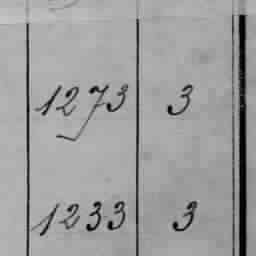 1273 3
1233 3